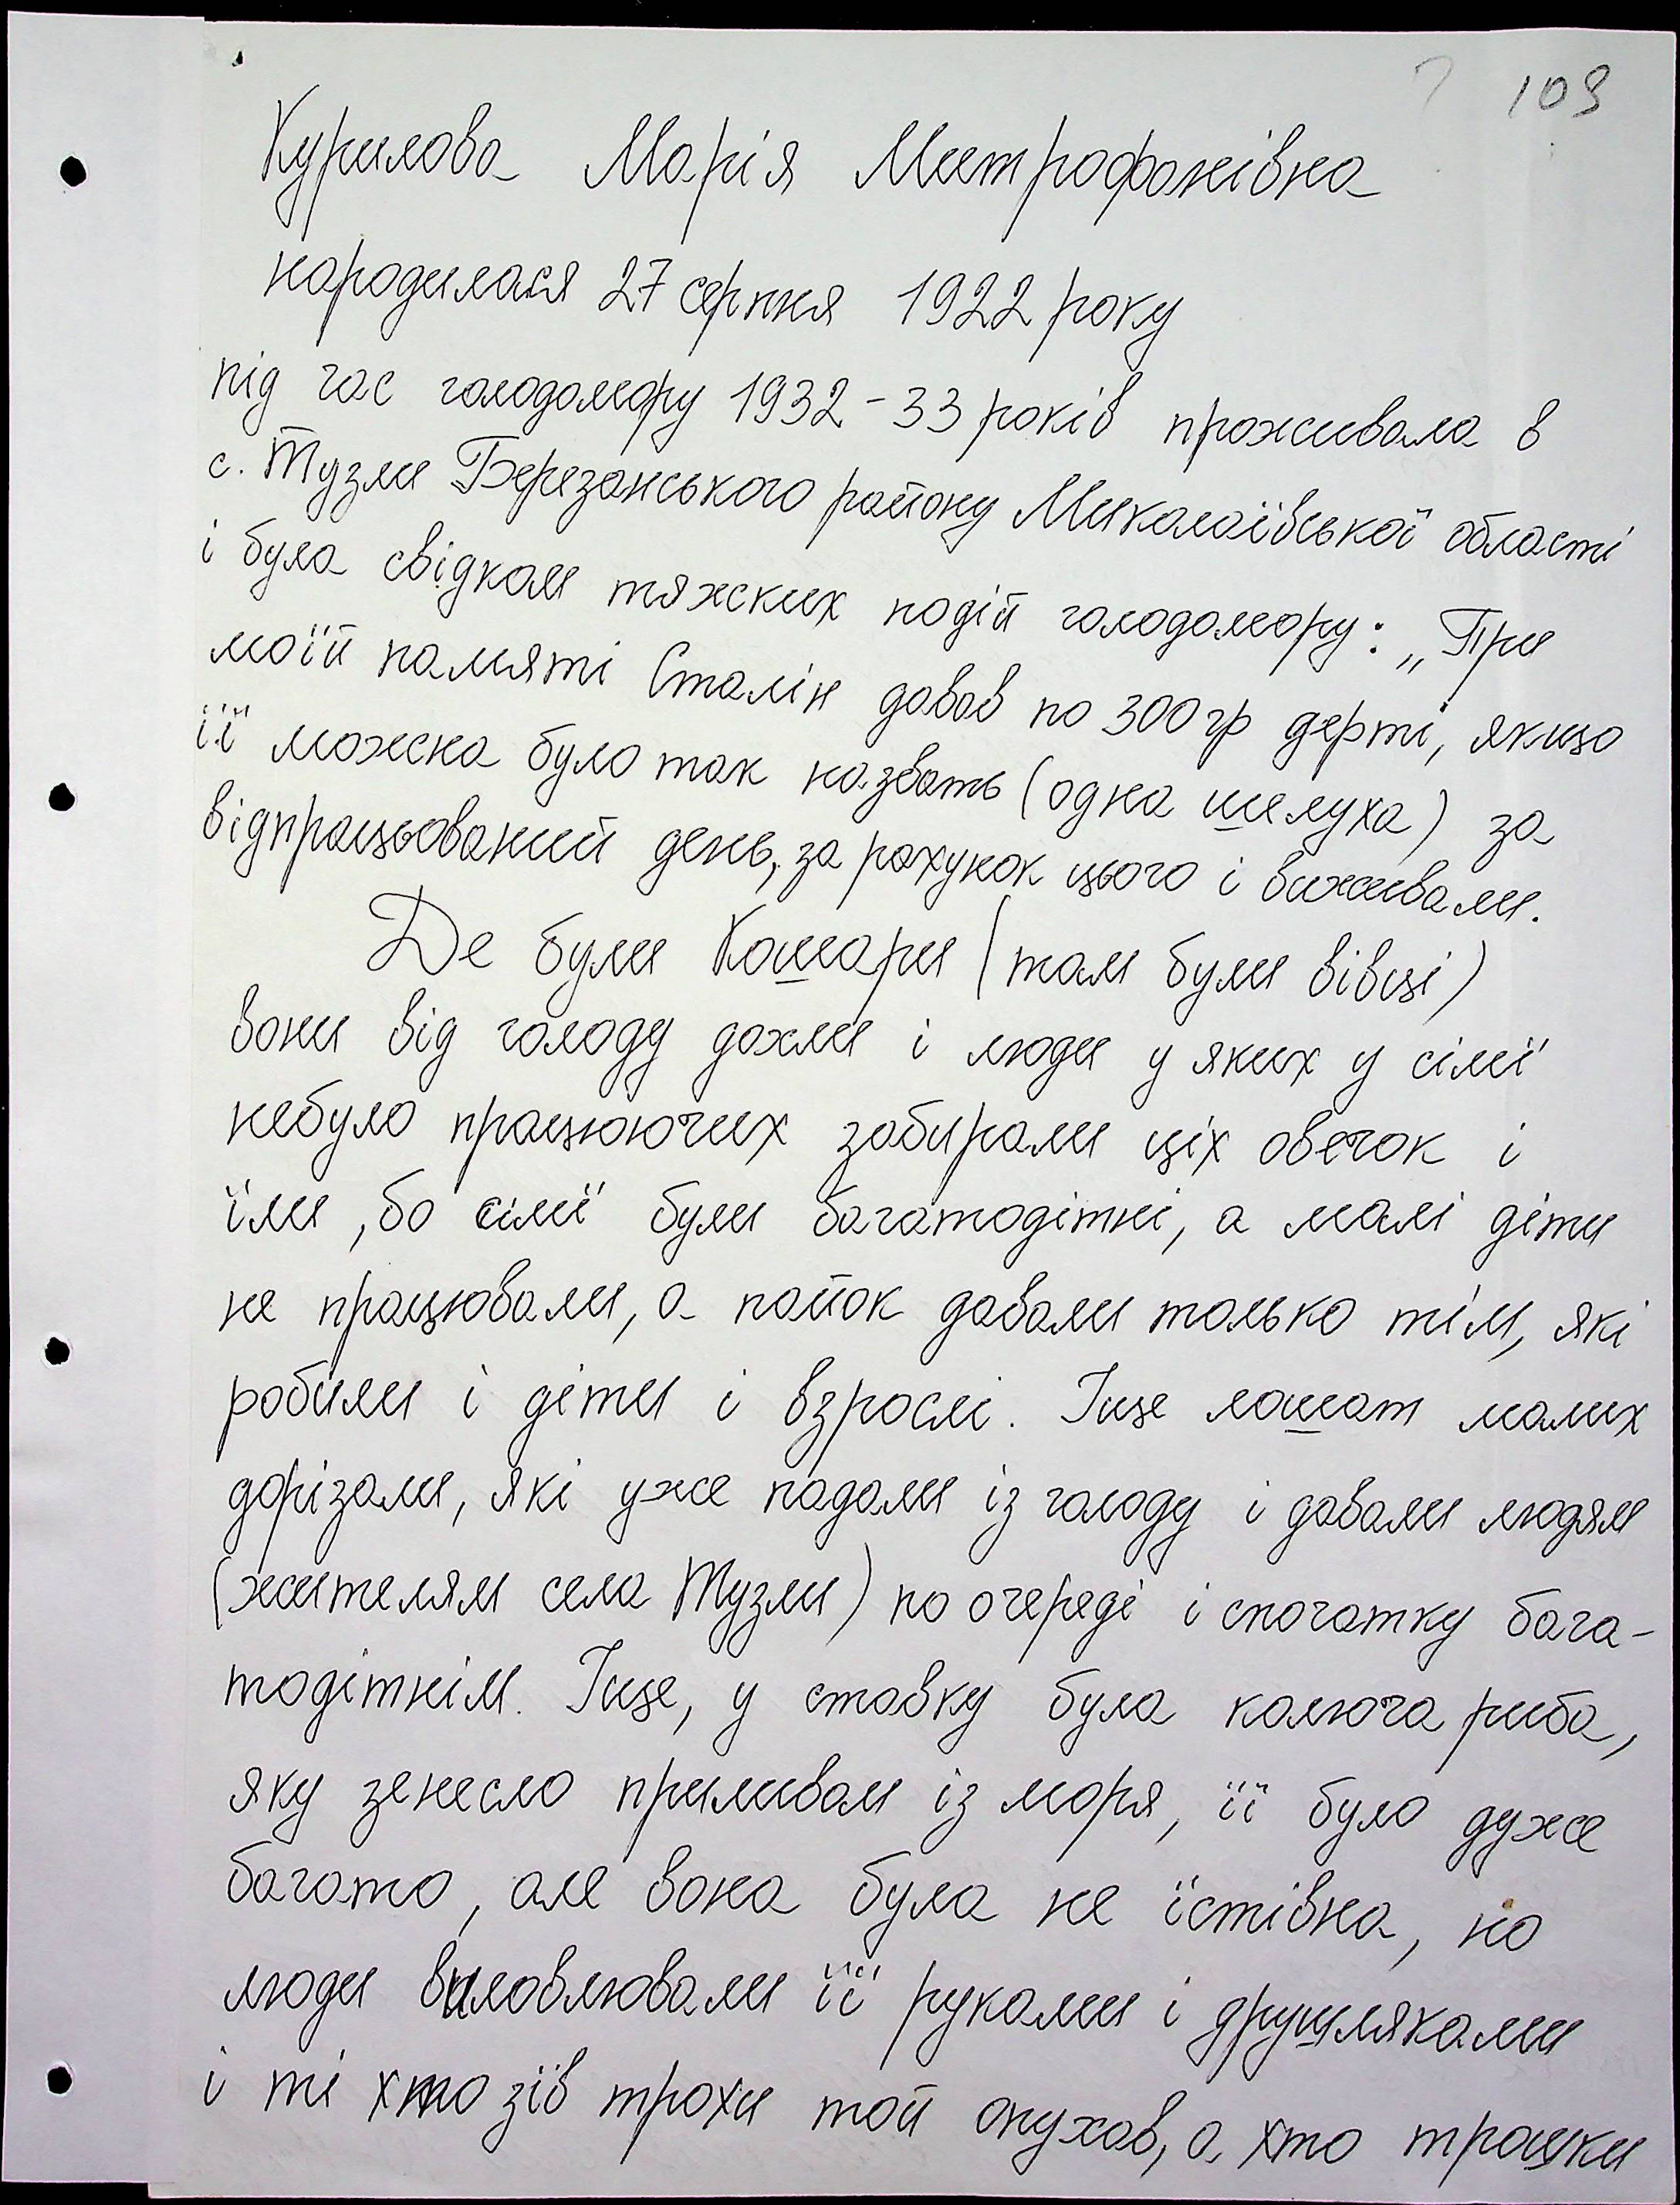 109
Курилова Марія Митрофонівна
народилася 27 серпня 1922 року
під час голодомору 1932-33 років проживала в
с. Тузли Березанського району Миколаївської області
і була свідком тяжких подій голодомору: „При
моїй памяті Сталін давав по 300 гр дерті, якщо
її можна було так назвать (одна шелуха) за
відпрацьований день, за рахунок цього і виживали.
Де були Кошари (там були вівці)
вони від голоду дохли і люди у яких у сімї
небуло працюючих забирали ціх овечок і
їли, бо сімї були багатодітні, а малі діти
не працювали, а пайок давали только тім, які
робили і діти і взрослі. Іще лошат малих
дорізали, які уже падали із голоду і давали людям
(жителям села Тузли) по очереді і спочатку бага-
тодітнім. Іще, у ставку була колюча риба,
яку зенесло приливом із моря, її було дуже
багато, але вона була не їстівна, но
люди виловлювали її руками і друшляками
і ті хто зїв трохи той опухав, а хто трошки